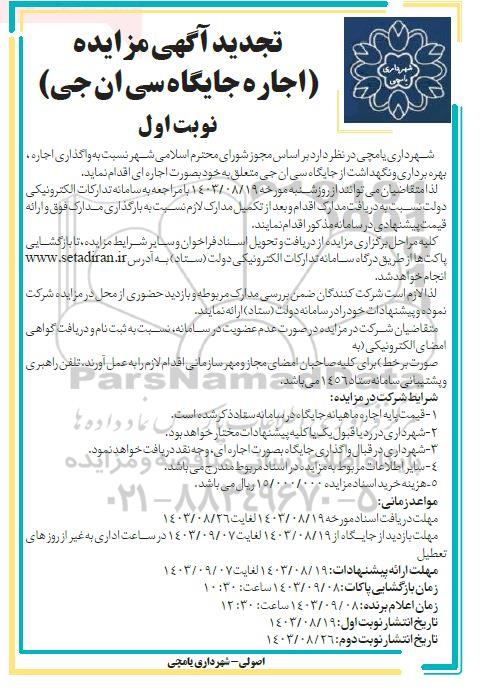 تجدید آگهی مزایده
(اجاره جایگاه سی ان جی)
نوبت اول
شهرداری یامچی
شهرداری یامچی در نظر دارد بر اساس مجوز شورای محترم اسلامی شهر نسبت به واگذاری اجاره ،
بهره برداری و نگهداشت از جایگاه سی ان جی متعلق به خود بصورت اجاره ای اقدام نماید.
لذا متقاضیان می توانند از روز شنبه مورخه ۱۴۰۳/۰۸/۱۹ با مراجعه به سامانه تدارکات الکترونیکی
دولت نسبت به دریافت مدارک اقدام و بعد از تکمیل مدارک لازم نسبت به بارگذاری مدارک فوق و ارائه
قیمت پیشنهادی در سامانه مذکور اقدام نمایند.
کلیه مراحل برگزاری مزایده از دریافت و تحویل اسناد فراخوان و سایر شرایط مزایده، تا بازگشایی
پاکت ها از طریق درگاه سامانه تدارکات الکترونیکی دولت (ستاد) به آدرس www.setadiran.ir
انجام خواهد شد.
لذا لازم است شرکت کنندگان ضمن بررسی مدارک مربوطه و بازدید حضوری از محل در مزایده شرکت
نموده و پیشنهادات خود را در سامانه دولت (ستاد) ارائه نمایند.
متقاضیان شرکت در مزایده در صورت عدم عضویت در سامانه، نسبت به ثبت نام و دریافت گواهی
امضای الکترونیکی (به
صورت برخط) برای کلیه صاحبان امضای مجاز و مهر سازمانی اقدام لازم را به عمل آورند. تلفن راهبری
و پشتیبانی سامانه ستاد ۱۴۵۶ می باشد.
شرایط شرکت در مزایده:
۱-قیمت پایه اجاره ماهیانه جایگاه در سامانه ستاد ذکر شده است.
۲-شهرداری در رد یا قبول یک یا کلیه پیشنهادات مختار خواهد بود.
۳-شهرداری در قبال واگذاری جایگاه بصورت اجاره ای ، وجه نقد دریافت خواهد نمود.
۴-سایر اطلاعات مربوط به مزایده در اسناد مربوط مندرج می باشد.
۵-هزینه خرید اسناد مزایده ۱۵/۰۰۰/۰۰۰ ریال می باشد.
مواعد زمانی:
مهلت دریافت اسناد مورخه ۱۴۰۳/۰۸/۱۹ لغایت ۱۴۰۳/۰۸/۲۶
مهلت بازدید از جایگاه از ۱۴۰۳/۰۸/۱۹ لغایت ۱۴۰۳/۰۹/۰۷ در ساعات اداری به غیر از روز های
تعطیل
مهلت ارائه پیشنهادات: ۱۴۰۳/۰۸/۱۹ لغایت ۱۴۰۳/۰۹/۰۷
زمان بازگشایی پاکات: ۱۴۰۳/۰۹/۰۸ ساعت: ۱۰:۳۰
زمان اعلام برنده: ۱۴۰۳/۰۹/۰۸ ساعت: ۱۲:۳۰
تاریخ انتشار نوبت اول: ۱۴۰۳/۰۸/۱۹
تاریخ انتشار نوبت دوم: ۱۴۰۳/۰۸/۲۶
اصولی – شهرداری یامچی
ParsNamadData
۰۲۱-۸۸۳۴۹۶۷۰-۵